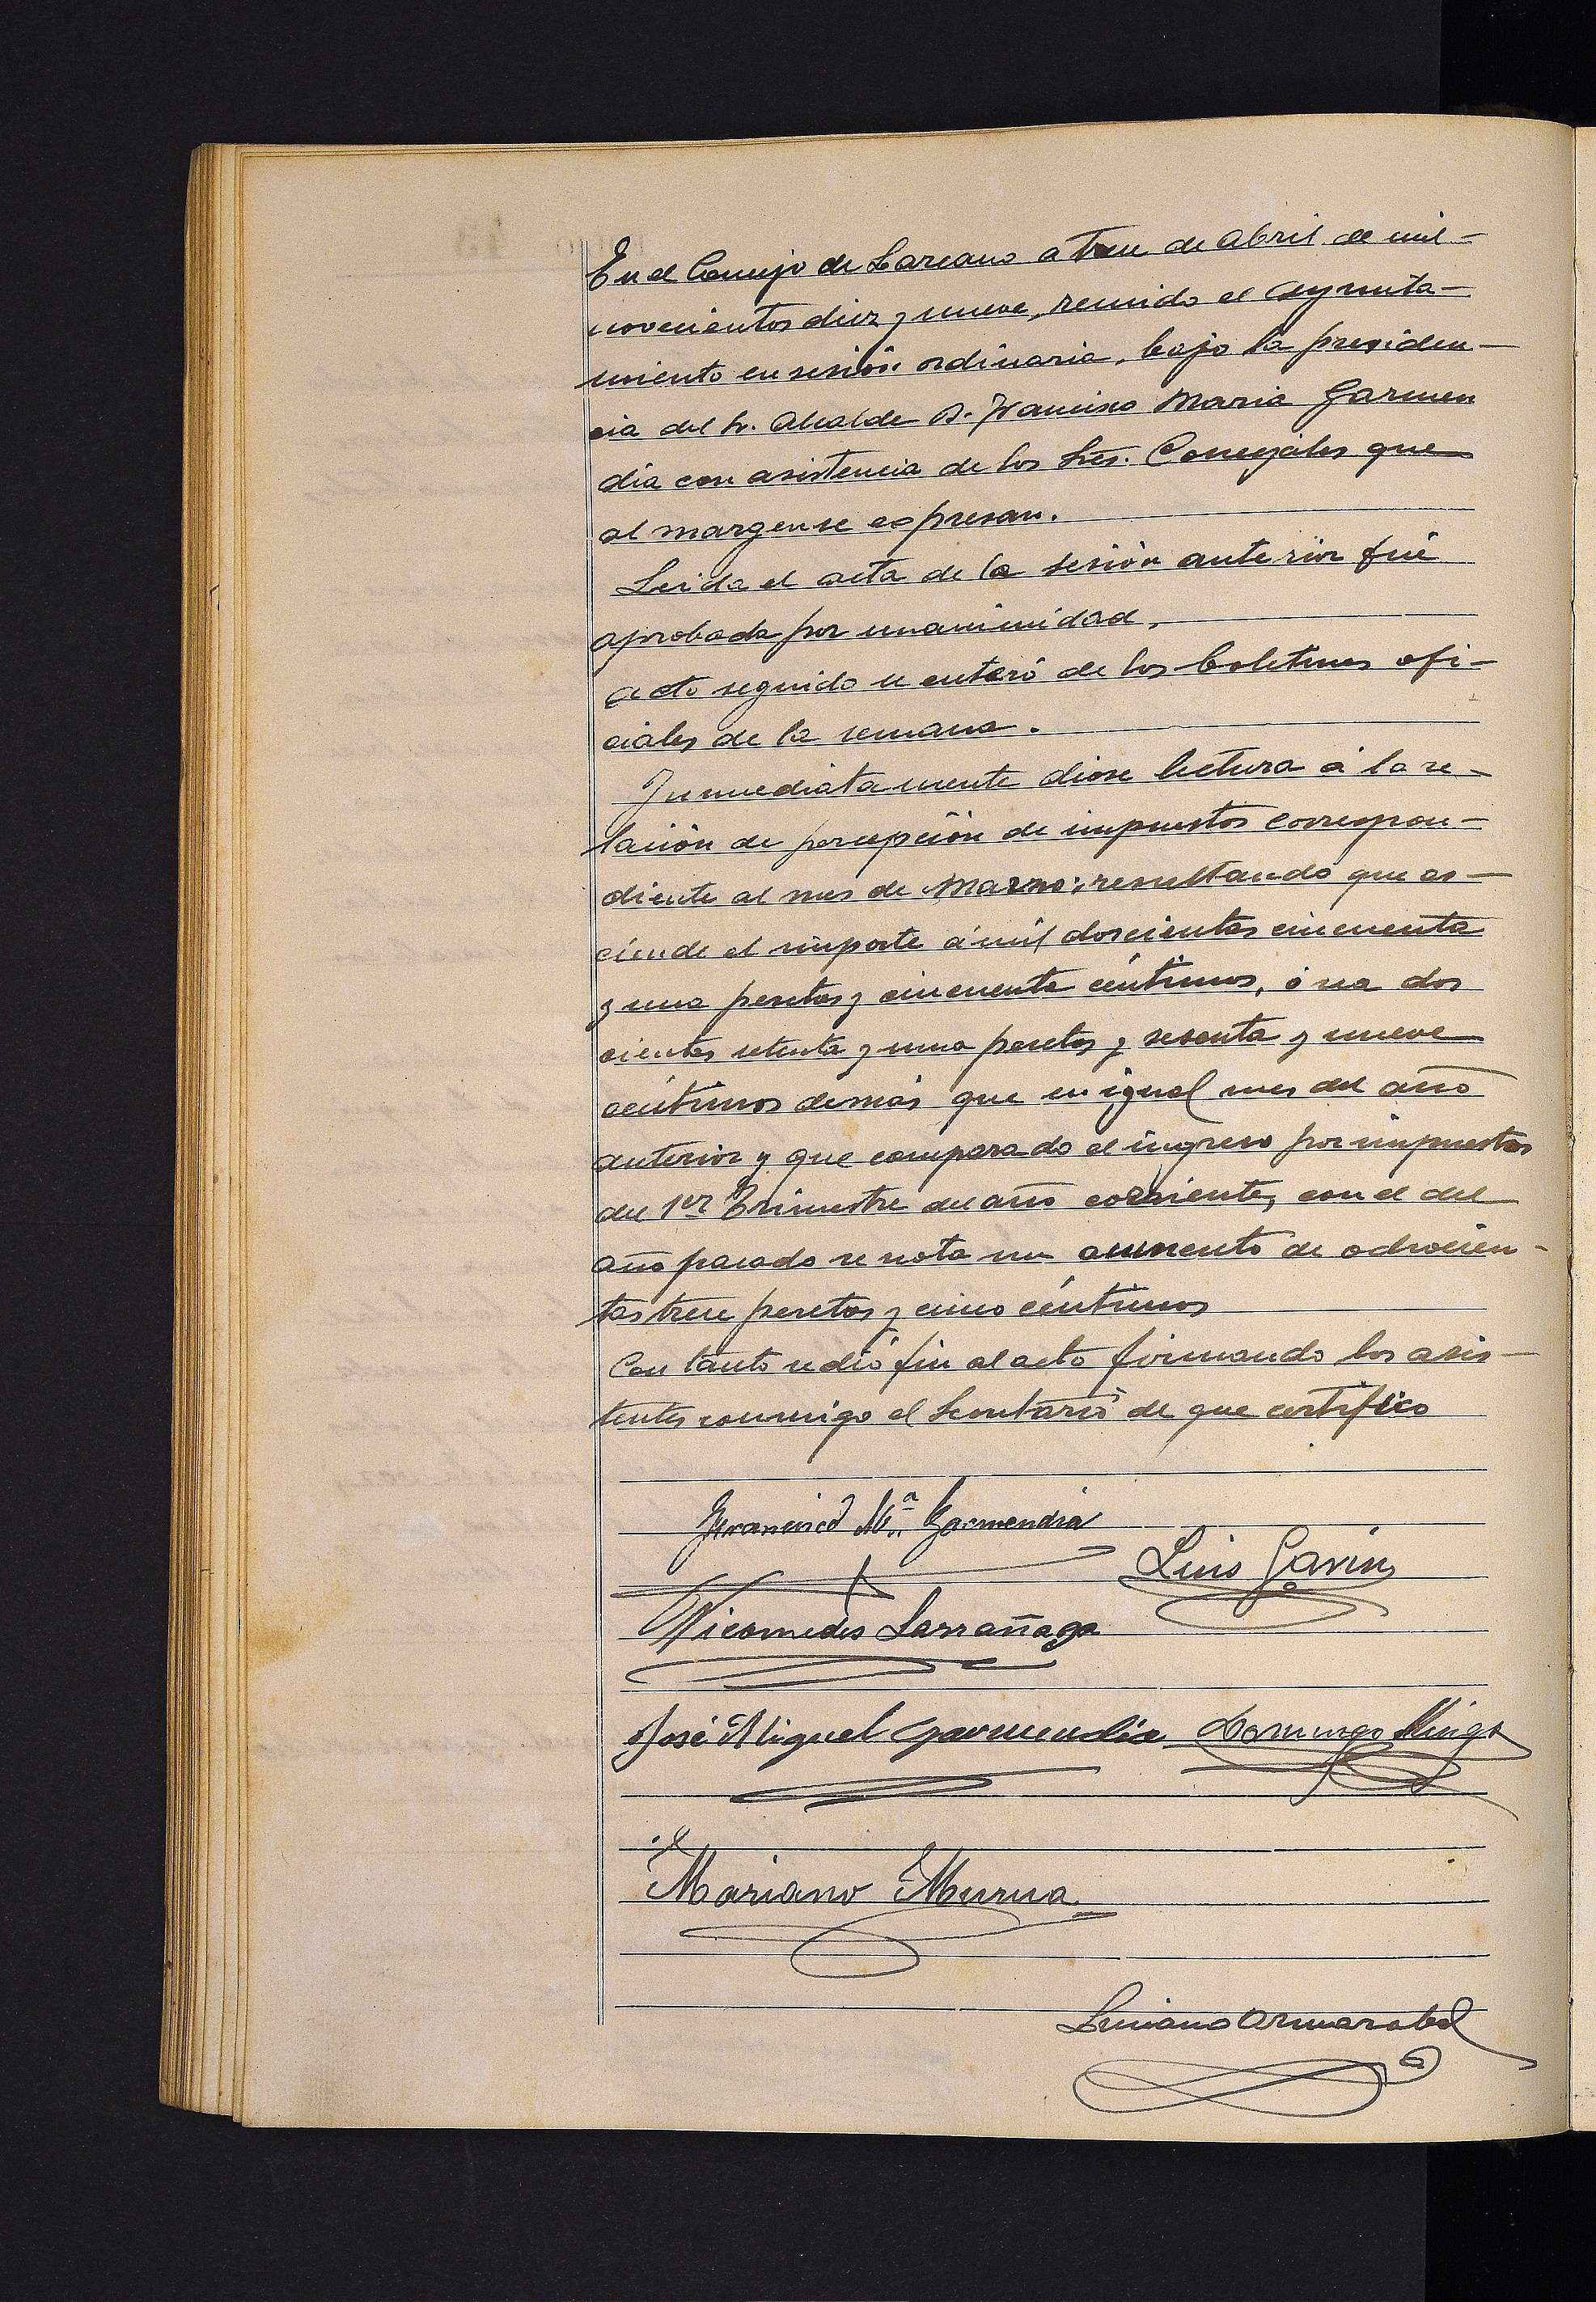 En el Concejo de Lazcano a trece de Abril de mil-
novecientos diez y nueve, reunido el Ayunta-
miento en sesión ordinaria, bajo la presiden-
cia del Sr. Alcalde D. Francisco Maria Garmen
dia con asistencia de los Sres. Concejales que
al margen se expresan.
Leida el acta de la sesión anterior fué
aprobada por unanimidad.
Acto seguido se enteró de los boletines ofi-
ciales de la semana.
Inmediatamente diose lectura á la re-
lación de percepción de impuestos correspon-
diente al mes de Marzo; resultando que as-
ciende el importe á mil doscientas cincuenta
y una pesetas y cincuenta céntimos, ó sea dos
cientas setenta y una pesetas y sesenta y nueve
céntimos demás que en igual mes del año
anterior y que comparado el ingreso por impuestos
del 1er Trimestre del año corriente, con el del
año pasado se nota un aumento de ochocien-
tas trece pesetas y cinco céntimos
Con tanto se dió fin al acto firmando los asis-
tentes conmigo el Secretario de que certifico
Francisco Mª Garmendia
Luis Gavin
Nicomedes Larrañaga
José Miguel Garmendia Domingo
Mariano Murua
Luciano